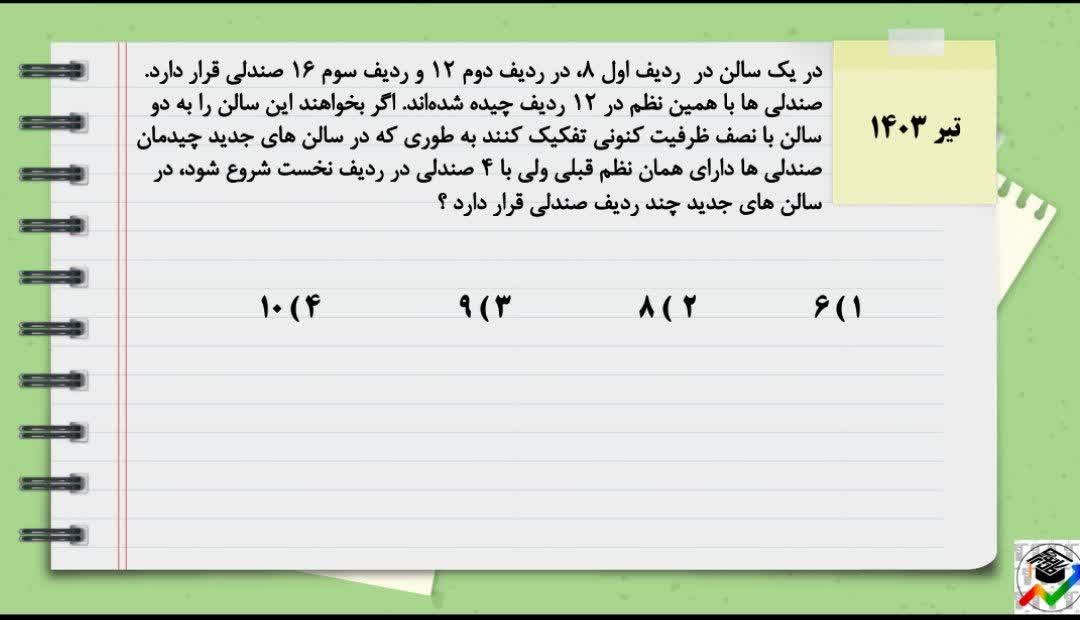 تیر ۱۴۰۳
در یک سالن در ردیف اول ۸، در ردیف دوم ۱۲ و ردیف سوم ۱۶ صندلی قرار دارد.
صندلی ها با همین نظم در ۱۲ ردیف چیده شده‌اند. اگر بخواهند این سالن را به دو
سالن با نصف ظرفیت کنونی تفکیک کنند به طوری که در سالن های جدید چیدمان
صندلی ها دارای همان نظم قبلی ولی با ۴ صندلی در ردیف نخست شروع شود، در
سالن های جدید چند ردیف صندلی قرار دارد ؟
۱) ۶ ۲) ۸ ۳) ۹ ۴) ۱۰